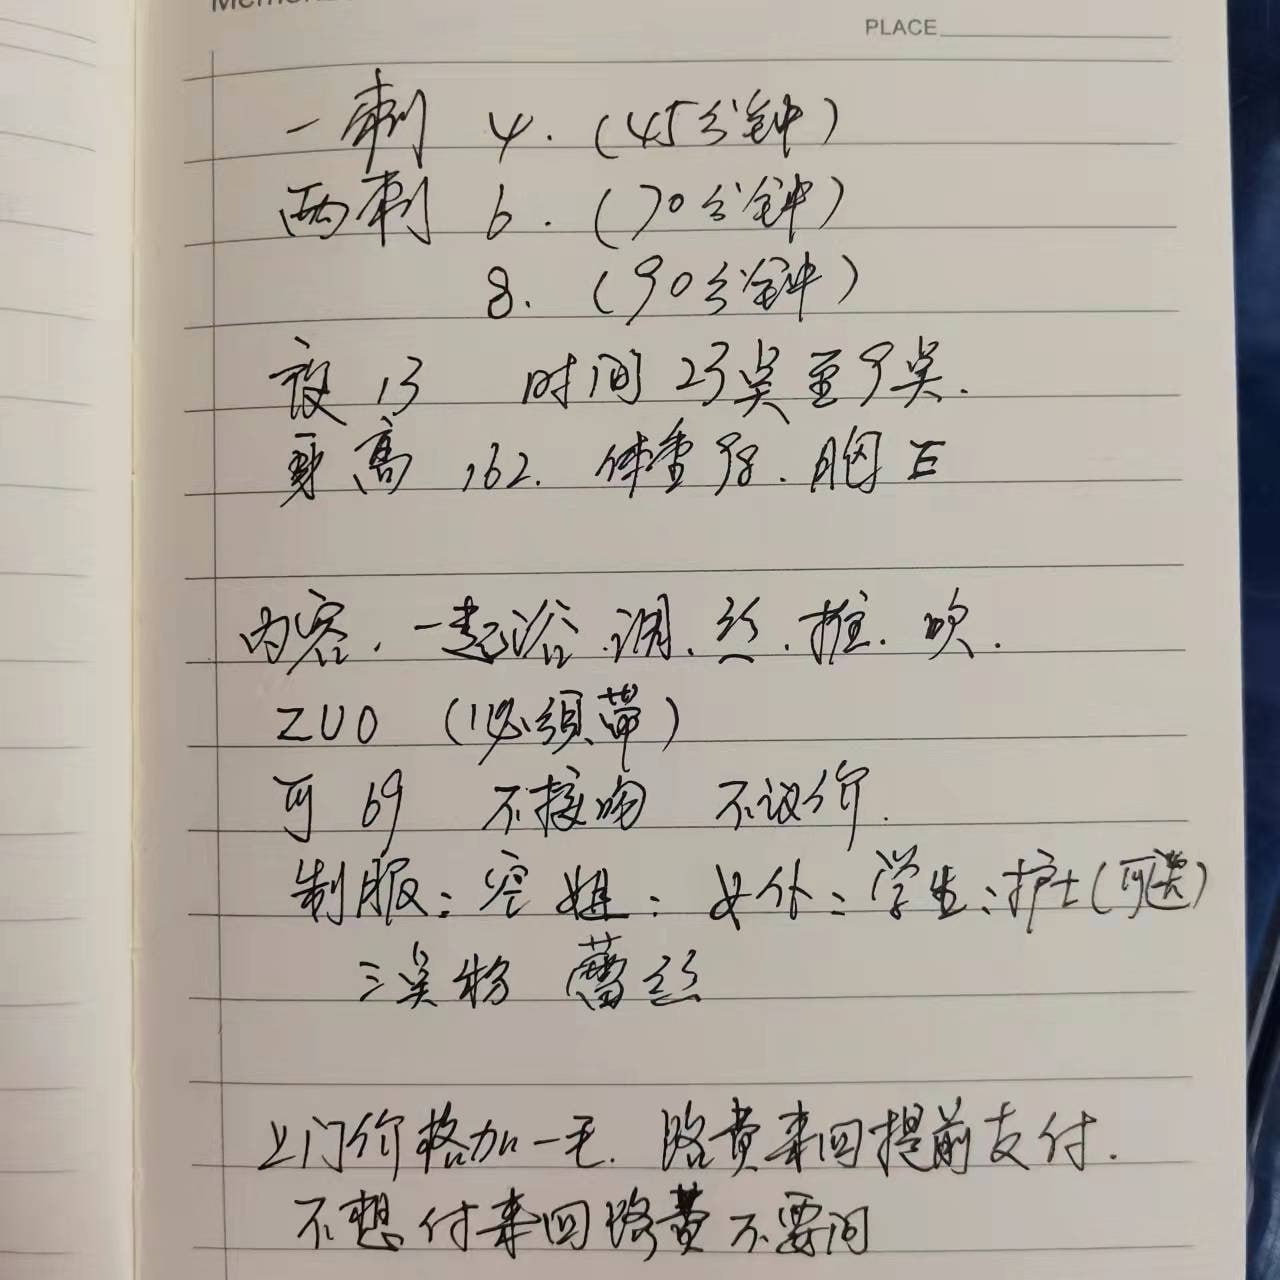 PLACE
一刺 4. (45分钟)
两刺 6. (70分钟)
8. (90分钟)
夜 13 时间 23点至9点.
身高 162. 体重98. 胸E
内容. 一起浴.调.丝.推.吹.
ZUO (必须带)
可 69 不接吻 不议价.
制服: 空姐: 女仆: 学生: 护士(可选)
三点粉 蕾丝
上门价格加一毛. 路费来回提前支付.
不想付来回路费不要问